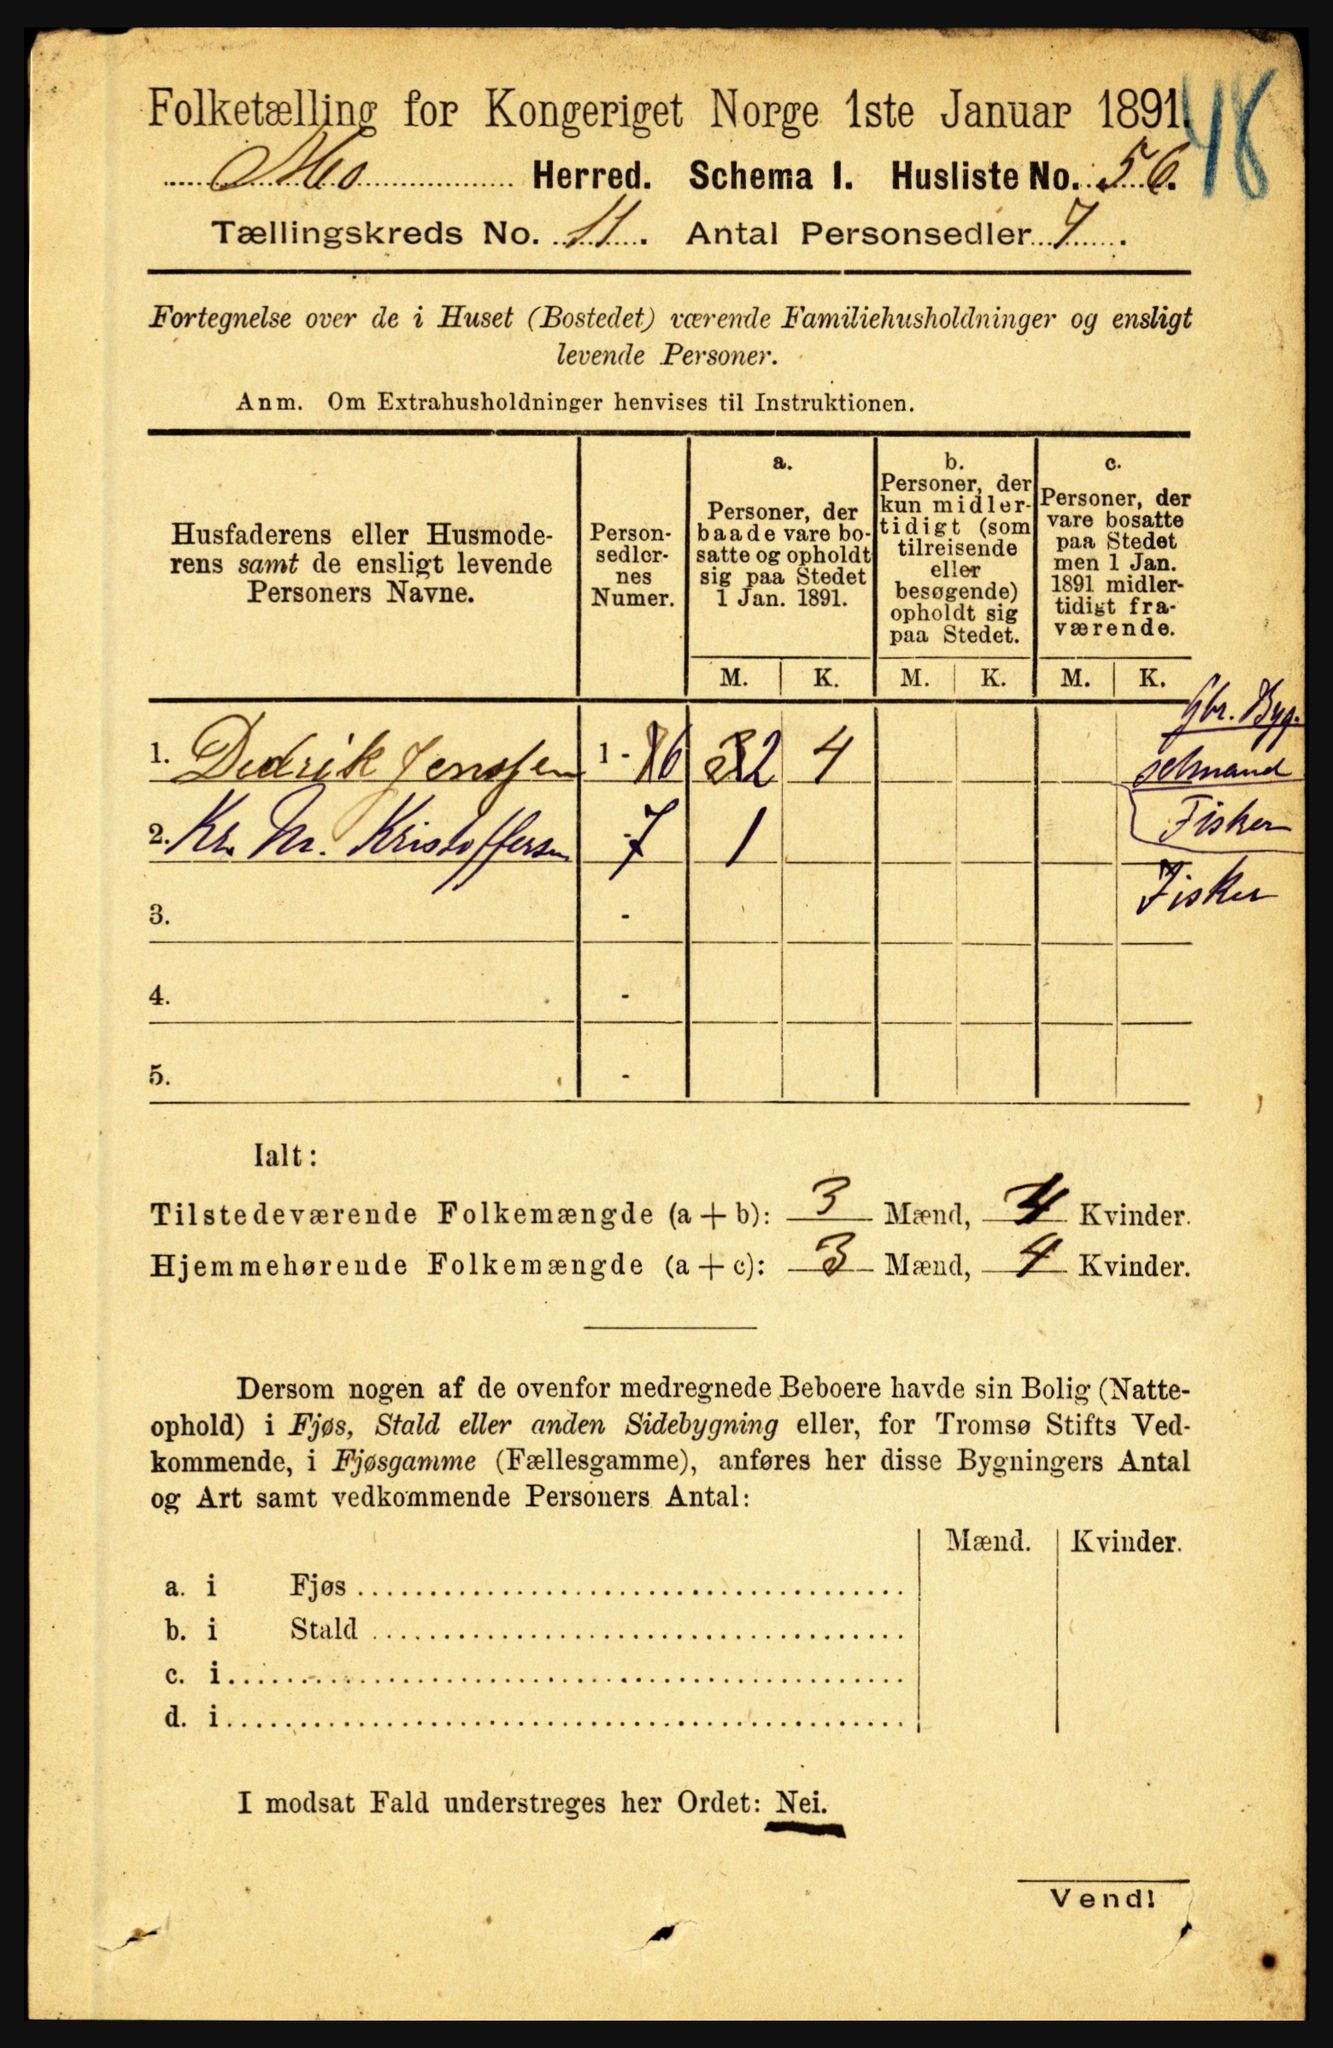 Folketælling for Kongeriget Norge 1ste Januar 1891.
48
Mo Herred. Schema I. Husliste No. 56.
Tællingskreds No. 11. Antal Personsedler 7.
Fortegnelse over de i Huset (Bostedet) værende Familiehusholdninger og ensligt
levende Personer.
Anm. Om Extrahusholdninger henvises til Instruktionen.
Husfaderens eller Husmode-
rens samt de ensligt levende
Personers Navne.
Person-
sedler-
nes
Numer.
a.
Personer, der
baade vare bo-
satte og opholdt
sig paa Stedet
1 Jan. 1891.
b.
Personer, der
kun midler-
tidigt (som
tilreisende
eller
besøgende)
opholdt sig
paa Stedet.
c.
Personer, der
vare bosatte
paa Stedet
men 1 Jan.
1891 midler-
tidigt fra-
værende.
M. K. M. K. M. K.
Gbr. Byg-
selmand
Fisker
1. Dedrik Jenssen 1 - 6 2 4
2. Kr. Mr. Kristoffersen - 7 1
Fisker
3. -
4. -
5. -
Ialt:
Tilstedeværende Folkemængde (a + b): 3 Mænd, 4 Kvinder.
Hjemmehørende Folkemængde (a + c): 3 Mænd, 4 Kvinder.
Dersom nogen af de ovenfor medregnede Beboere havde sin Bolig (Natte-
ophold) i Fjøs, Stald eller anden Sidebygning eller, for Tromsø Stifts Ved-
kommende, i Fjøsgamme (Fællesgamme), anføres her disse Bygningers Antal
og Art samt vedkommende Personers Antal:
Mænd. Kvinder.
a. i Fjøs
b. i Stald
c. i
d. i
I modsat Fald understreges her Ordet: Nei.
Vend!